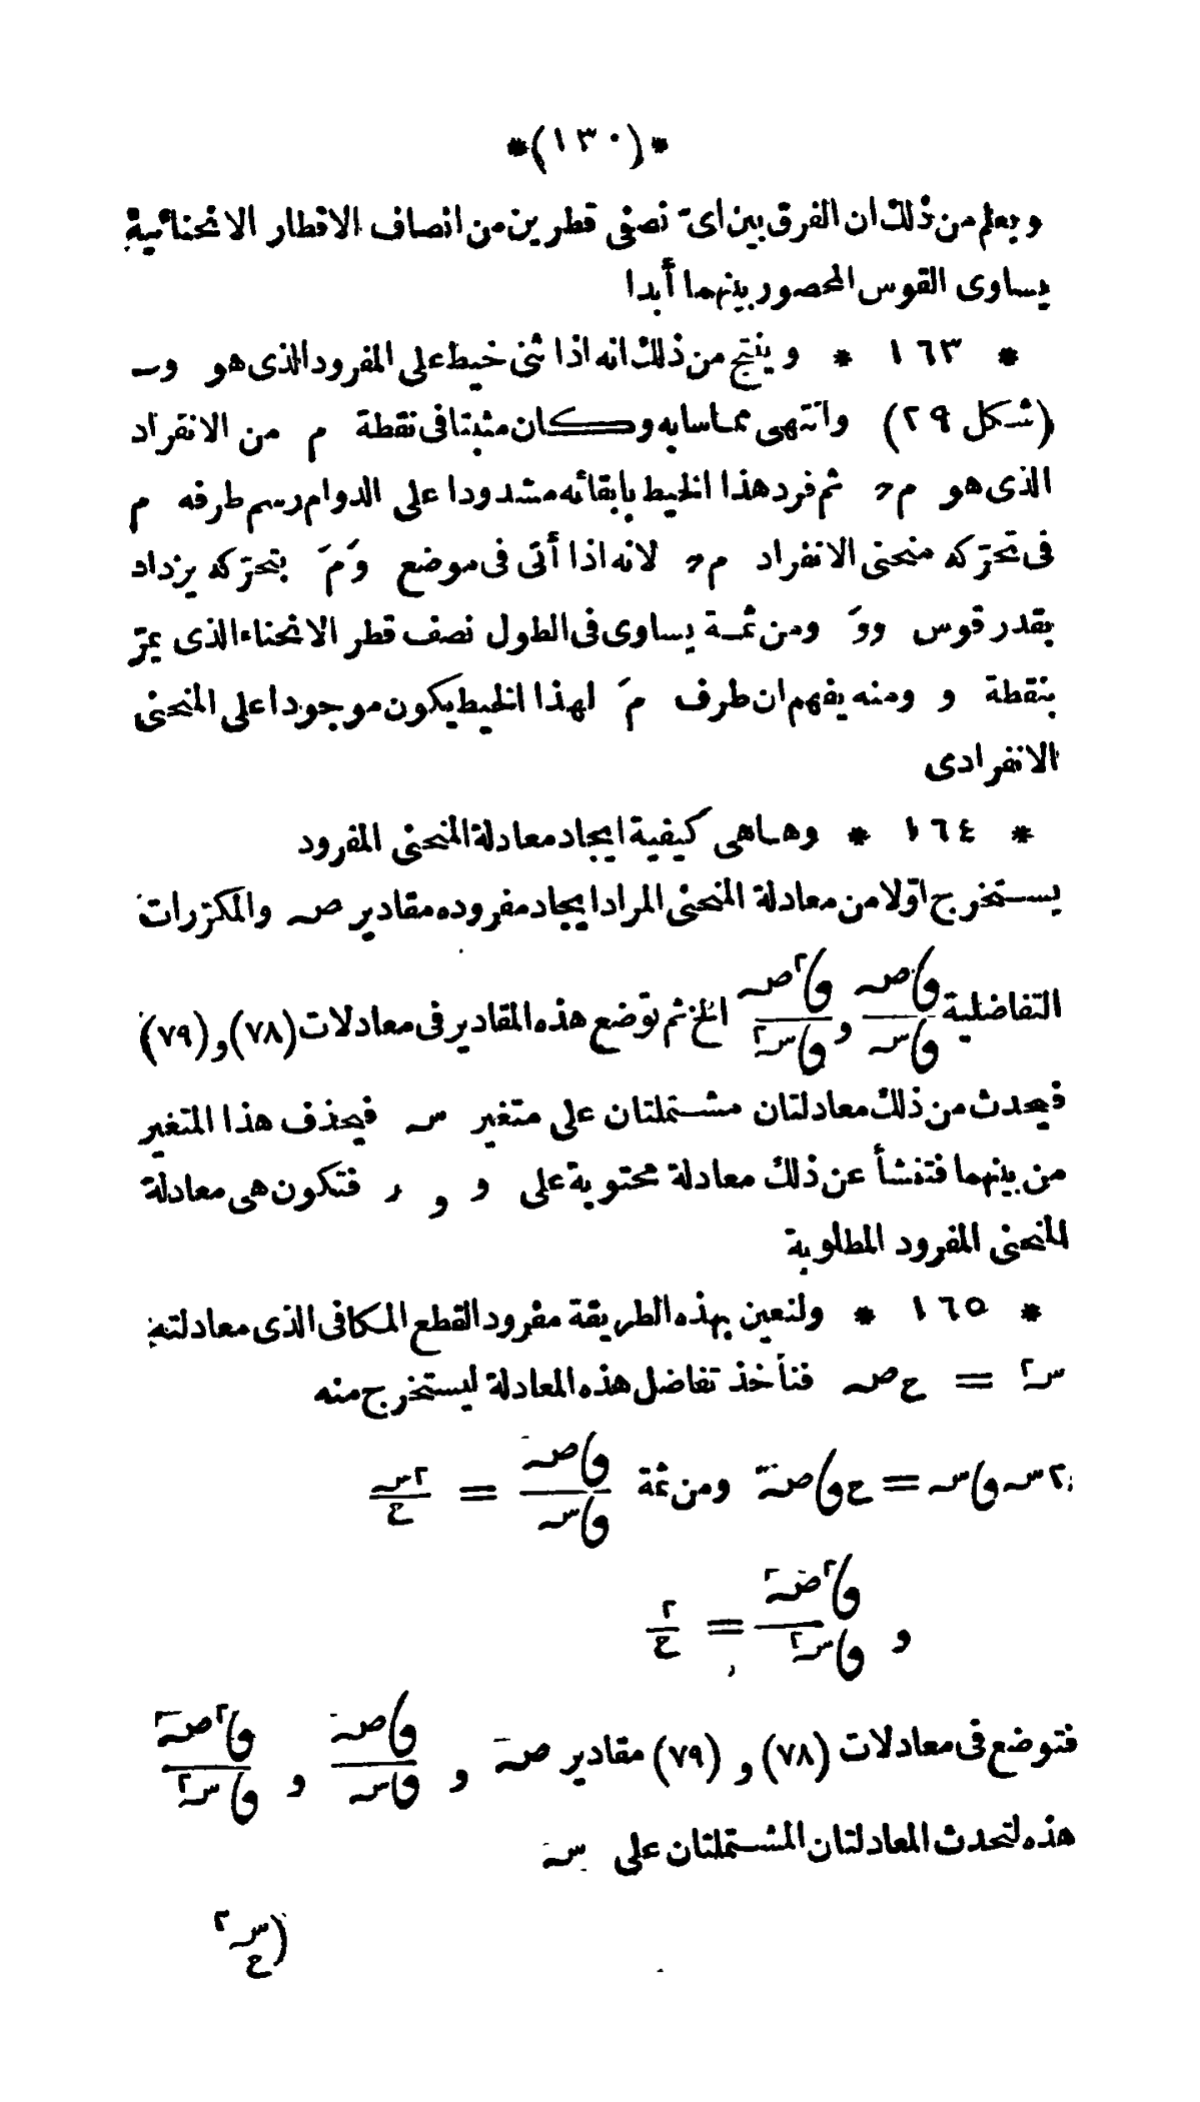 *(١٣٠)*
ويعلم من ذلك ان الفرق بين اىّ نصفى قطرين من انصاف الاقطار الانحنائية
يساوى القوس المحصور بينهما أبدا
* ١٦٣ * وينتج من ذلك انه اذا ثنى خيط على المفرود الذى هو وـــ
(شكل ٢٩) وانتهى مماسا به وكان مثبتا فى نقطة م من الانفراد
الذى هو م ثم فرد هذا الخيط بابقائه مشدودا على الدوام رسم طرفه م
فى تحرّكه منحنى الانفراد م لانه اذا أتى فى موضع وَمَ بتحرّكه يزداد
بقدر قوس ووَ ومن ثمة يساوى فى الطول نصف قطر الانحناء الذى يمرّ
بنقطة و ومنه يفهم ان طرف مَ لهذا الخيط يكون موجودا على المنحنى
الانفرادى
* ١٦٤ * وها هى كيفية ايجاد معادلة المنحنى المفرود
يستخرج اوّلا من معادلة المنحنى المراد ايجاد مفروده مقادير صہ والمكرّرات
التفاضلية و‍ا صہ / و‍ا سہ و و‍ا٢ صہ / و‍ا سہ٢ الخ ثم توضع هذه المقادير فى معادلات (٧٨) و (٧٩)
فيحدث من ذلك معادلتان مشتملتان على متغير سہ فيحذف هذا المتغير
من بينهما فتنشأ عن ذلك معادلة محتوية على و و ر فتكون هى معادلة
المنحنى المفرود المطلوبة
* ١٦٥ * ولنعين بهذه الطريقة مفرود القطع المكافى الذى معادلته
سہ٢ = ع صہ فنأخذ تفاضل هذه المعادلة ليستخرج منه
٢سہ و‍ا سہ = ع و‍ا صہ ومن ثمة و‍ا صہ / و‍ا سہ = ٢سہ / ع
و و‍ا٢ صہ / و‍ا سہ٢ = ٢ / ع
فتوضع فى معادلات (٧٨) و (٧٩) مقادير صہ و و‍ا صہ / و‍ا سہ و و‍ا٢ صہ / و‍ا سہ٢
هذه لتحدث المعادلتان المشتملتان على سہ
(سہ٢ / ع